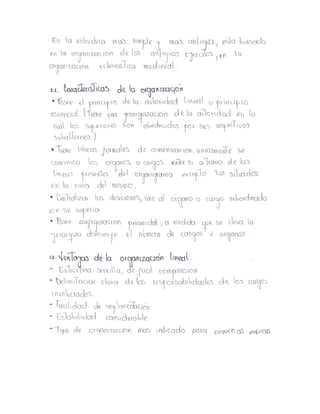 Es la estructura mas simple y mas antigua, esta basada
en la organizacion de los antiguos ejercitos, en la
organizacion eclesiastica medieval.
1.1. Caracteristicas de la organización
• Posee el principio de la autoridad lineal o principio
escencial (tiene una jerarquizacion de la autoridad en la
cual los superiores son obedecidos por sus respectivos
subalternos)
• Tiene lineas formales de comunicacion, unicamente se
comunica los organos o cargos entre si a traves de las
lineas presentes del organigrama excepto los situados
en la cima del mismo.
• Centralizar las decisiones, une al organo o cargo subordinado
con su superior
• Posee configuracion piramidal, a medida que se eleva la
jerarquia disminuye el número de cargos u organos.
1.2. Ventajas de la organización lineal.
- Estructura sencilla, de facil compresion
- Delimitacion clara de las responsabilidades de los cargos
involucrados
- Facilidad de implantación
- Estabilidad considerable
- Tipo de organizacion mas indicado para pequeñas empresas